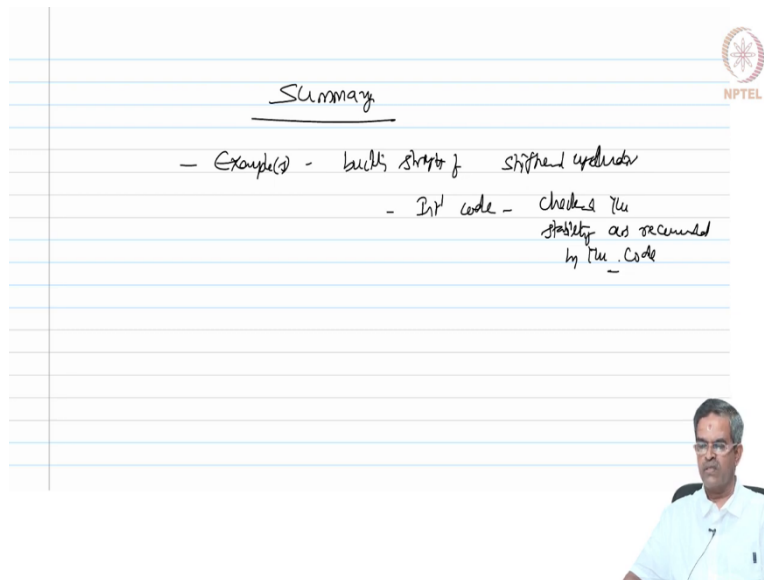 NPTEL
Summary
- Example(s) - buckling strength of stiffened cylinder
- Int'l code - checked the
stability as recommended
by the code